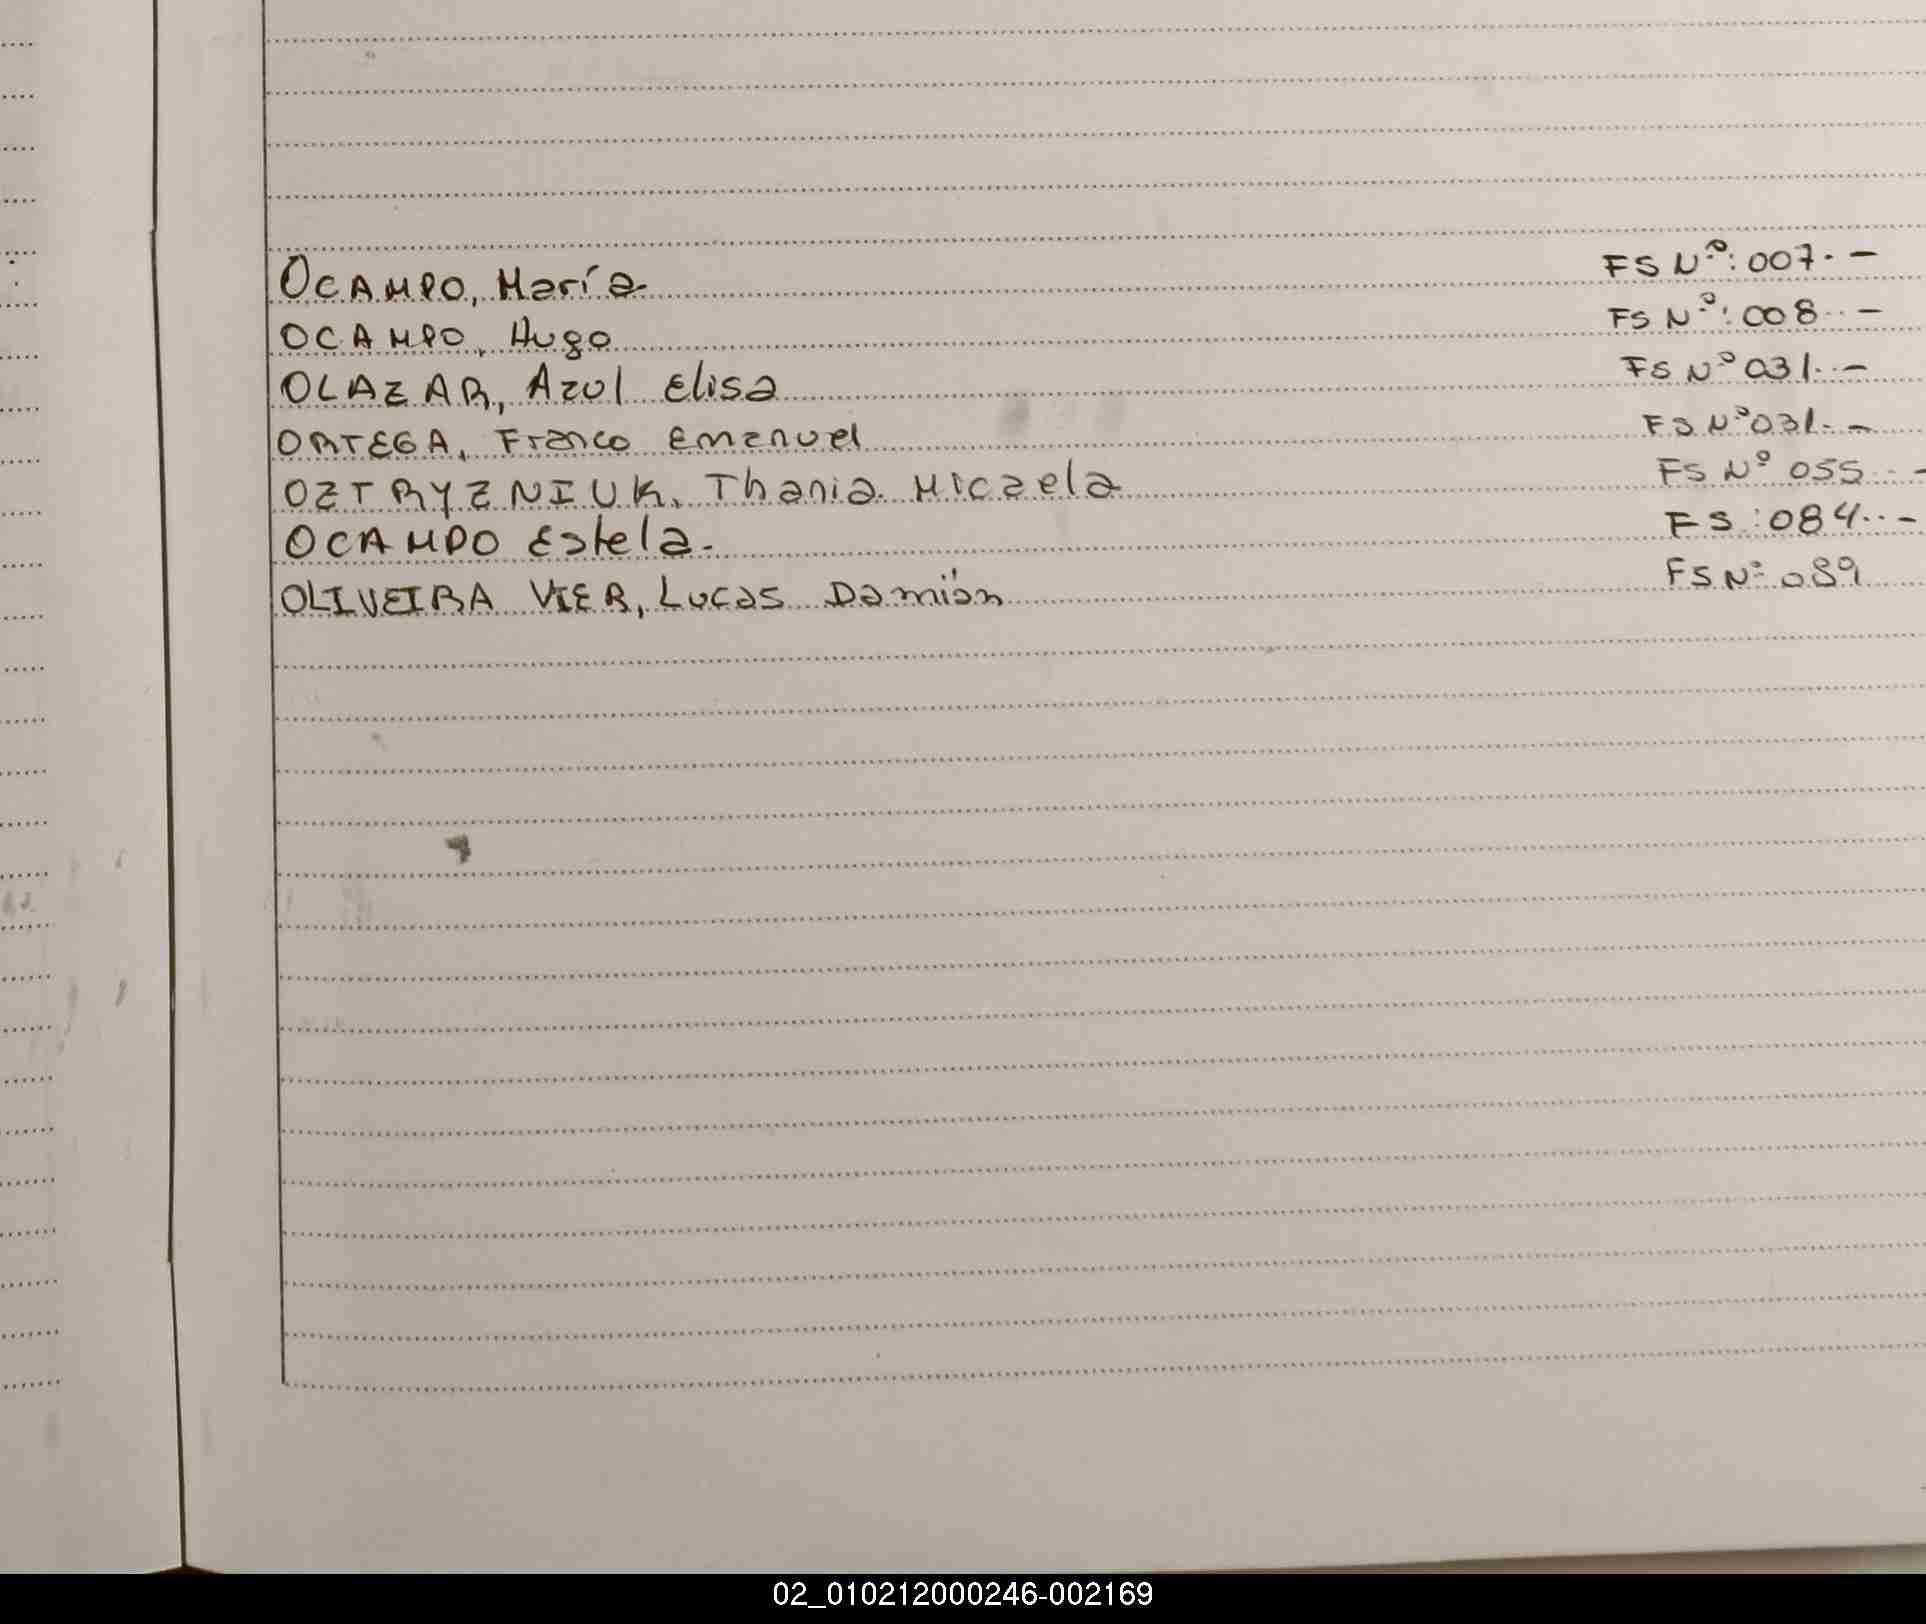 OCAMPO, María FS Nº: 007.-
OCAMPO, Hugo FS Nº: 008.-
OLAZAR, Azul Elisa FS Nº 031.-
ORTEGA, Franco Emanuel FS Nº 031.-
OZTRYZNIUK, Thania Micaela FS Nº 055.-
OCAMPO Estela.- FS: 084.-
OLIVEIRA VIER, Lucas Damián FS Nº 089
02_010212000246-002169